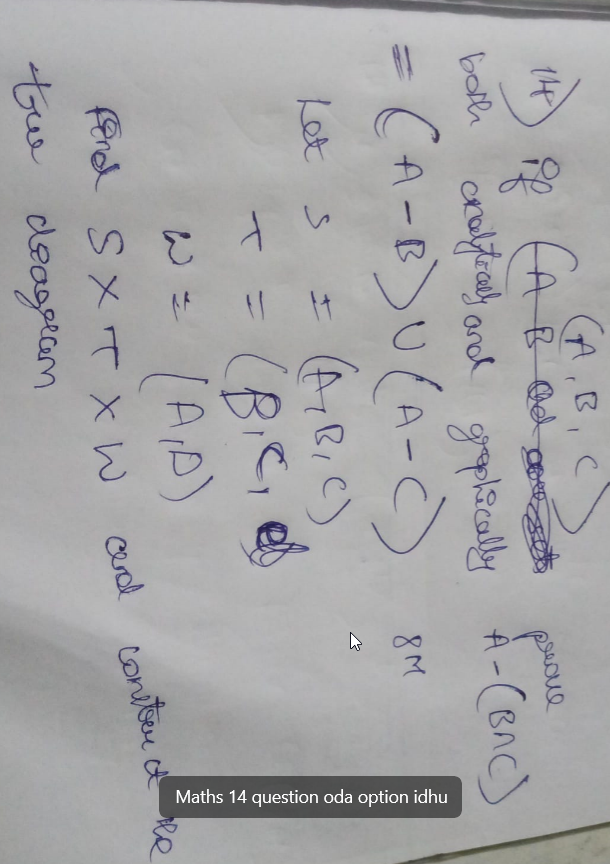 (A, B, C)
14) if prove
both analytically and graphically A-(B∩C)
= (A-B) U (A-C) 8M
Let S = (A, B, C)
T = (B, C,
W = (A, D)
find S X T X W and construct the
tree deagram
Maths 14 question oda option idhu